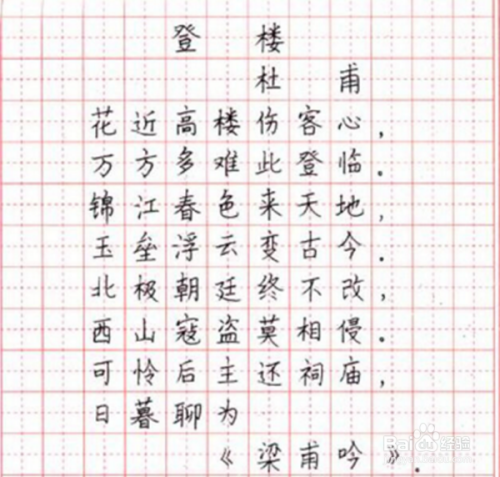 登楼
杜甫
花近高楼伤客心，
万方多难此登临。
锦江春色来天地，
玉垒浮云变古今．
北极朝廷终不改，
西山寇盗莫相侵。
可怜后主还祠庙，
日暮聊为
《梁甫吟》．
Baidu经验